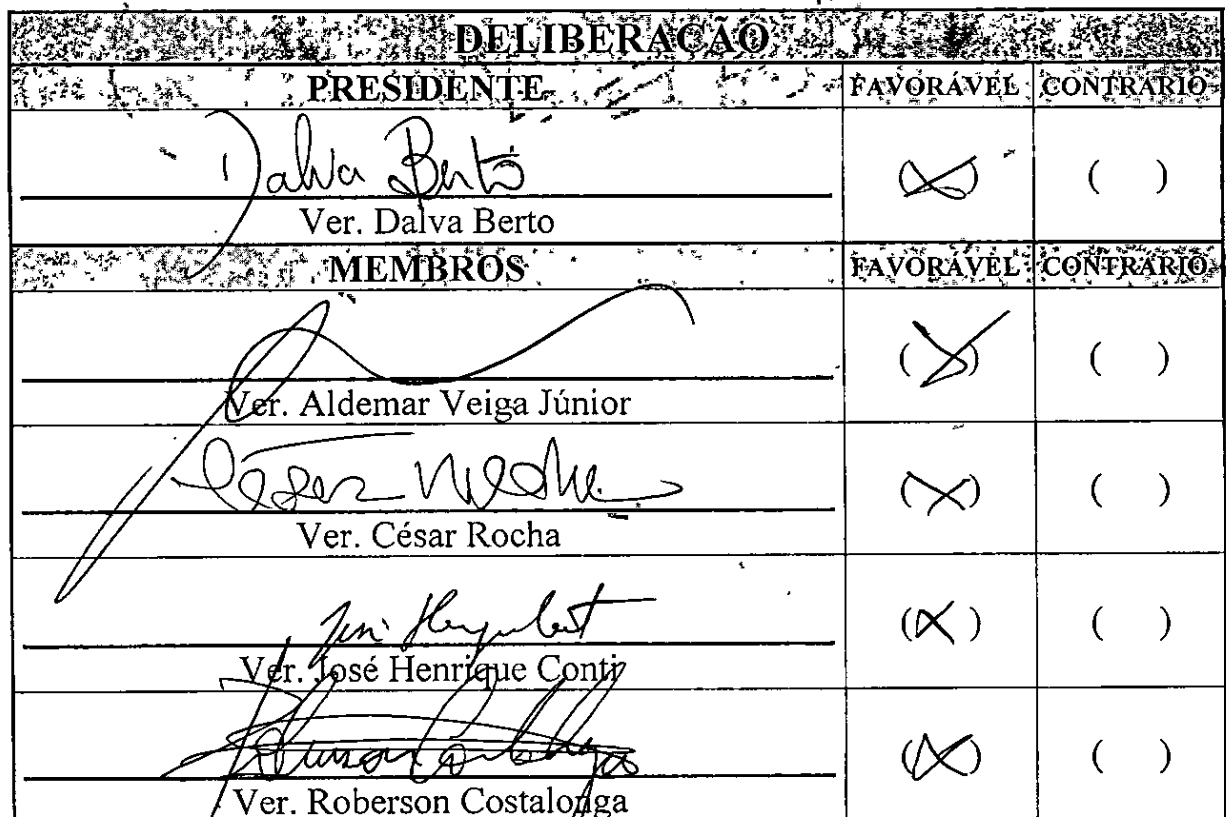 DELIBERAÇÃO
PRESIDENTE FAVORÁVEL CONTRÁRIO
Dalva Berto (X) ( )
Ver. Dalva Berto
MEMBROS FAVORÁVEL CONTRÁRIO
(X) ( )
Ver. Aldemar Veiga Júnior
César Rocha (X) ( )
Ver. César Rocha
José (X) ( )
Ver. José Henrique Conti
Roberson Costalonga (X) ( )
Ver. Roberson Costalonga